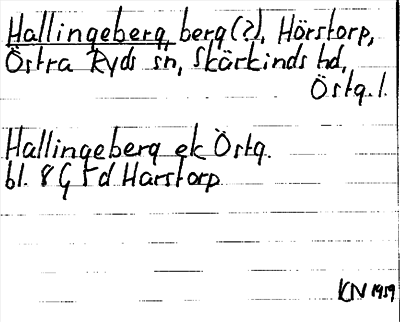 Hallingeberg, berg(?), Hörstorp,
Östra Ryds sn, Skärkinds hd,
Östg. l.
Hallingeberg ek Östg.
bl. 8 G 5d Harstorp
KN 1959